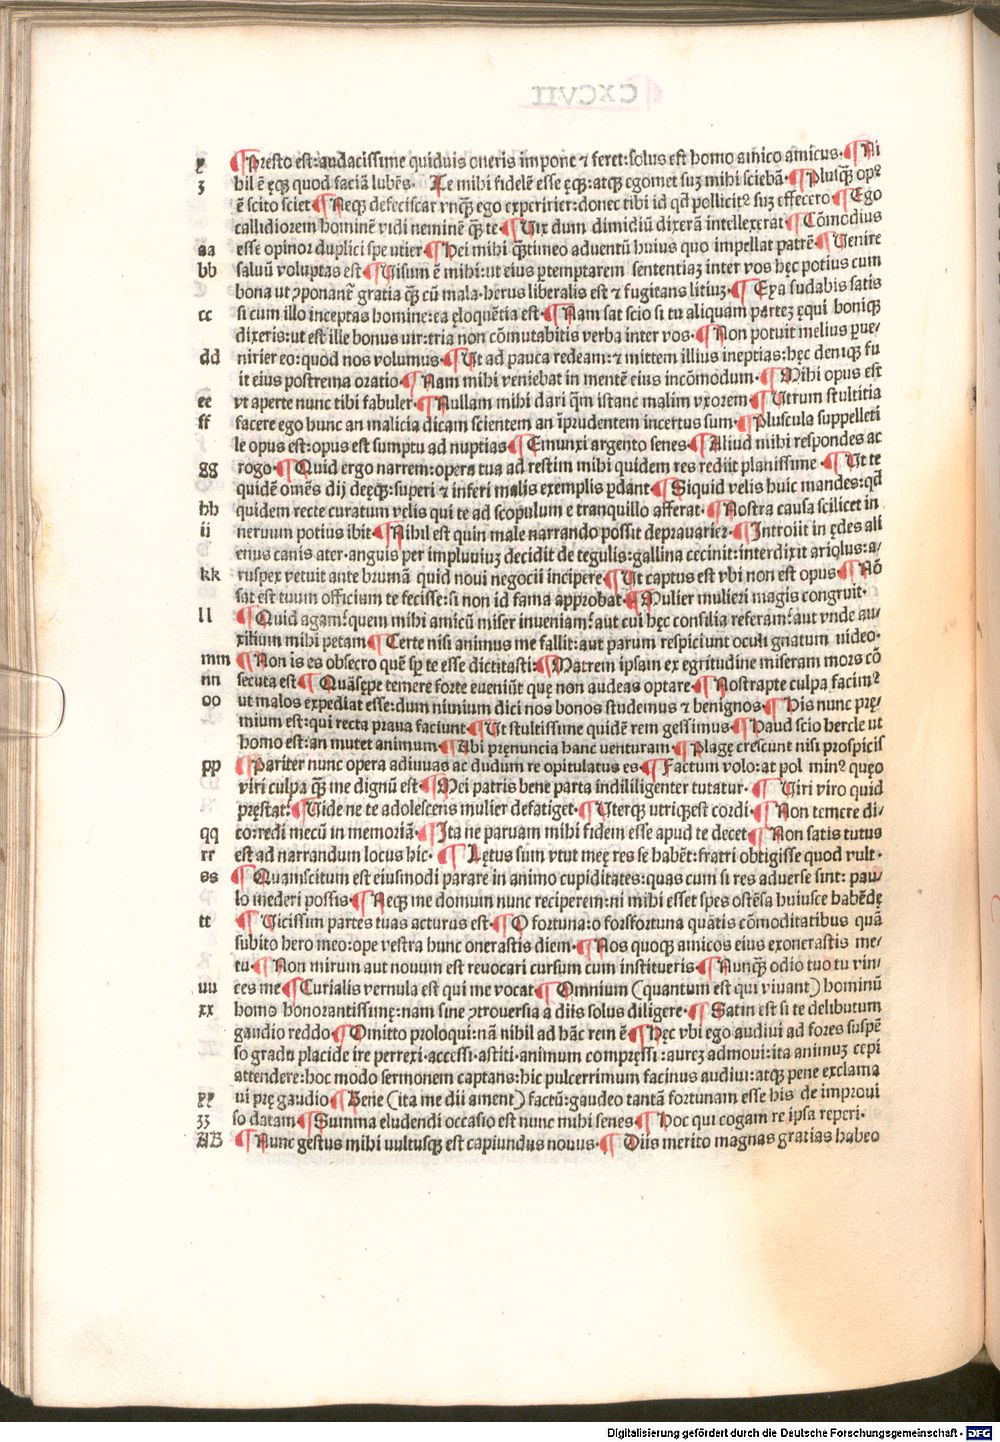 CXCVII
y ¶Presto est:audacissime quiduis oneris impone ⁊ feret:solus est homo amico amicus·¶Ni
ʒ hil ē ęqꝫ quod faciā lubēs· Te mihi fidelē esse ęqꝫ:atqꝫ egomet suꝫ mihi sciebā·¶Plusqꝫ̄ opꝰ
ē scito sciet¶Neqꝫ defeciscar vnqꝫ̄ ego experirier:donec tibi id qđ pollicitꝰ suꝫ effecero¶Ego
callidiorem hominē vidi neminē qꝫ̄ te¶Uix dum dimidiū dixerā intellexerat¶Cōmodius
aa esse opinor duplici spe vtier¶Hei mihi qꝫ̄timeo aduentū huius quo impellat patrē¶Uenire
bb saluū voluptas est¶Uisum ē mihi:ut eius ꝑtemptarem sententiaꝫ inter vos hęc potius cum
bona ut ꝯponant̄ gratia qꝫ̄ cū mala·herus liberalis est ⁊ fugitans litiuꝫ·¶Exa sudabis satis
cc si cum illo inceptas homine:ea ęloquētia est·¶Nam sat scio si tu aliquam parteꝫ ęqui boniqꝫ
dixeris:ut est ille bonus vir:tria non cōmutabitis verba inter vos·¶Non potuit melius ꝑue/
dd nirier eo:quod nos volumus·¶Ut ad pauca redeam:⁊ mittem illius ineptias:hęc deniqꝫ fu
it eius postrema oratio¶Nam mihi veniebat in mentē eius incōmodum·¶Mihi opus est
ee vt aperte nunc tibi fabuler·¶Nullam mihi dari qm̄ istanc malim vxorem¶Utrum stultitia
ff facere ego hunc an malicia dicam scientem an īprudentem incertus sum·¶Pluscula suppelleti
le opus est:opus est sumptu ad nuptias¶Emunxi argento senes·¶Aliud mihi respondes ac
gg rogo·¶Quid ergo narrem:opera tua ad restim mihi quidem res rediit planissime·¶Ut te
quidē omēs dij deęqꝫ:superi ⁊ inferi malis exemplis ꝑdant¶Siquid velis huic mandes:qđ
hh quidem recte curatum velis qui te ad scopulum e tranquillo afferat·¶Nostra causa scilicet in
ii neruum potius ibit¶Nihil est quin male narrando possit deprauarier·¶Introiit in ędes ali
enus canis ater·anguis per impluuiuꝫ decidit de tegulis:gallina cecinit:interdixit ariolus:a/
kk ruspex vetuit ante brumā quid noui negocii incipere¶Ut captus est vbi non est opus¶Nō
sat est tuum officium te fecisse:si non id fama approbat·¶Mulier mulieri magis congruit·
ll ¶Quid agam:quem mihi amicū miser inueniam:aut cui hęc consilia referam:aut vnde au/
xilium mihi petam¶Certe nisi animus me fallit:aut parum respiciunt oculi gnatum uideo·
mm ¶Non is es obsecro quē sp̄ te esse dictitasti:¶Matrem ipsam ex egritudine miseram mors cō
nn secuta est¶Quāsępe temere forte eueniūt quę non audeas optare·¶Nostrapte culpa facimꝰ
oo ut malos expediat esse:dum nimium dici nos bonos studemus ⁊ benignos¶His nunc prę/
mium est:qui recta praua faciunt¶Ut stultissime quidē rem gessimus¶Haud scio hercle ut
homo est:an mutet animum¶Abi prenuncia hanc venturam¶Plagę crescunt nisi prospicis
pp ¶Pariter nunc opera adiuuas ac dudum re opitulatus es¶Factum volo:at pol minꝰ quęo
viri culpa qꝫ̄ me dignū est¶Mei patris bene parta indiliigenter tutatur·¶Uiri viro quid
pręstat:¶Uide ne te adolescens mulier defatiget·¶Uterqꝫ utriqꝫest cordi¶Non temere di/
qq co:redi mecū in memoriā·¶Ita ne paruam mihi fidem esse apud te decet¶Non satis tutus
rr est ad narrandum locus hic·¶Lętus sum vtut meę res se habēt:fratri obtigisse quod vult·
ss ¶Quamscitum est eiusmodi parare in animo cupiditates:quas cum si res aduerse sint: pau/
lo mederi possis¶Neqꝫ me domum nunc reciperem:ni mihi esset spes ostēsa huiusce habēdę
tt ¶Uicissim partes tuas acturus est·¶O fortuna:o forsfortuna quātis cōmoditatibus quā
subito hero meo:ope vestra hunc onerastis diem·¶Nos quoqꝫ amicos eius exonerastis me/
tu·¶Non mirum aut nouum est reuocari cursum cum institueris·¶Nunqꝫ̄ odio tuo tu vin/
uu ces me¶Curialis vernula est qui me vocat¶Omnium (quantum est qui viuant) hominū
xx homo honorantissimę:nam sine ꝯtrouersia a diis solus diligere·¶Satin est si te delibutum
gaudio reddo¶Omitto proloqui:nā nihil ad hāc rem ē¶Hęc vbi ego audiui ad fores suspē
so gradu placide ire perrexi·accessi·astiti·animum compręssi:aureꝫ admoui:ita animuꝫ cepi
attendere:hoc modo sermonem captans:hic pulcerrimum facinus audiui:atqꝫ pene exclama
yy ui prę gaudio¶Bene (ita me dii ament) factū:gaudeo tantā fortunam esse his de improui
ʒʒ so datam¶Summa eludendi occasio est nunc mihi senes¶Hoc qui cogam re ipsa reperi·
AB ¶Nunc gestus mihi uultusqꝫ est capiundus nouus·¶Diis merito magnas gratias habeo
Digitalisierung gefördert durch die Deutsche Forschungsgemeinschaft - DFG